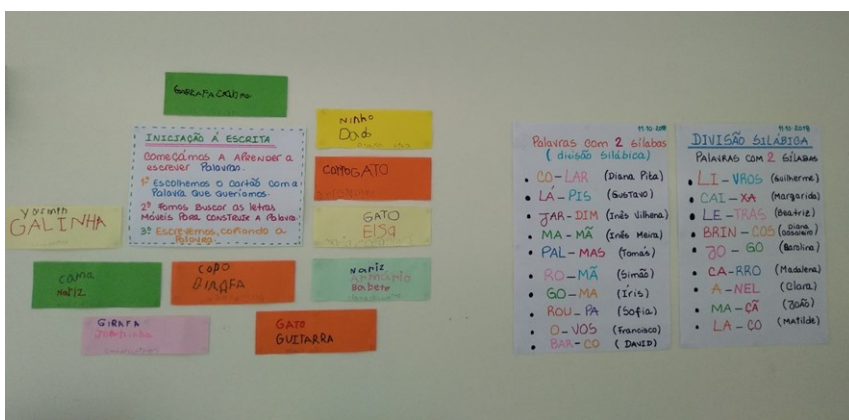 GARRAFA
INICIAÇÃO Á ESCRITA
Começámos a Aprender a
escrever Palavras.
1º Escolhemos o cartão com a
Palavra que queríamos.
2º Fomos Buscar as letras
Móveis Para construir a Palavra.
3º Escrevemos, copiando a
Palavra.
NINHO
Dado
COPO GATO
GATO
ELSA
GALINHA
cama
Nariz
COPO
GIRAFA
NARIZ
ARMÁRIO
Babete
GIRAFA
Joaninha
GATO
GUITARRA
11-10-2018
Palavras com 2 sílabas
(divisão silábica)
CO - LAR (Diana Pita)
LÁ - PIS (Gustavo)
JAR - DIM (Inês Vilhena)
MA - MÃ (Inês Meira)
PAL - MAS (Tomás)
RO - MÃ (Simão)
GO - MA (Íris)
ROU - PA (Sofia)
O - VOS (Francisco)
BAR - CO (DAVID)
11-10-2018
DIVISÃO SILÁBICA
PALAVRAS COM 2 SÍLABAS
LI - VROS (Guilherme)
CAI - XA (Margarida)
LE - TRAS (Beatriz)
BRIN - COS (Diana
JO - GO (Carolina)
CA - RRO (Madalena)
A - NEL (Clara)
MA - ÇÃ (João)
LA - ÇO (Matilde)